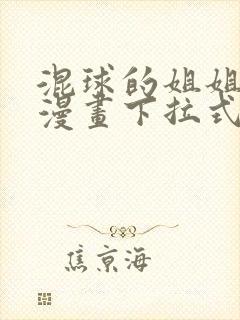 混球的姐姐
漫畫下拉式
焦京海